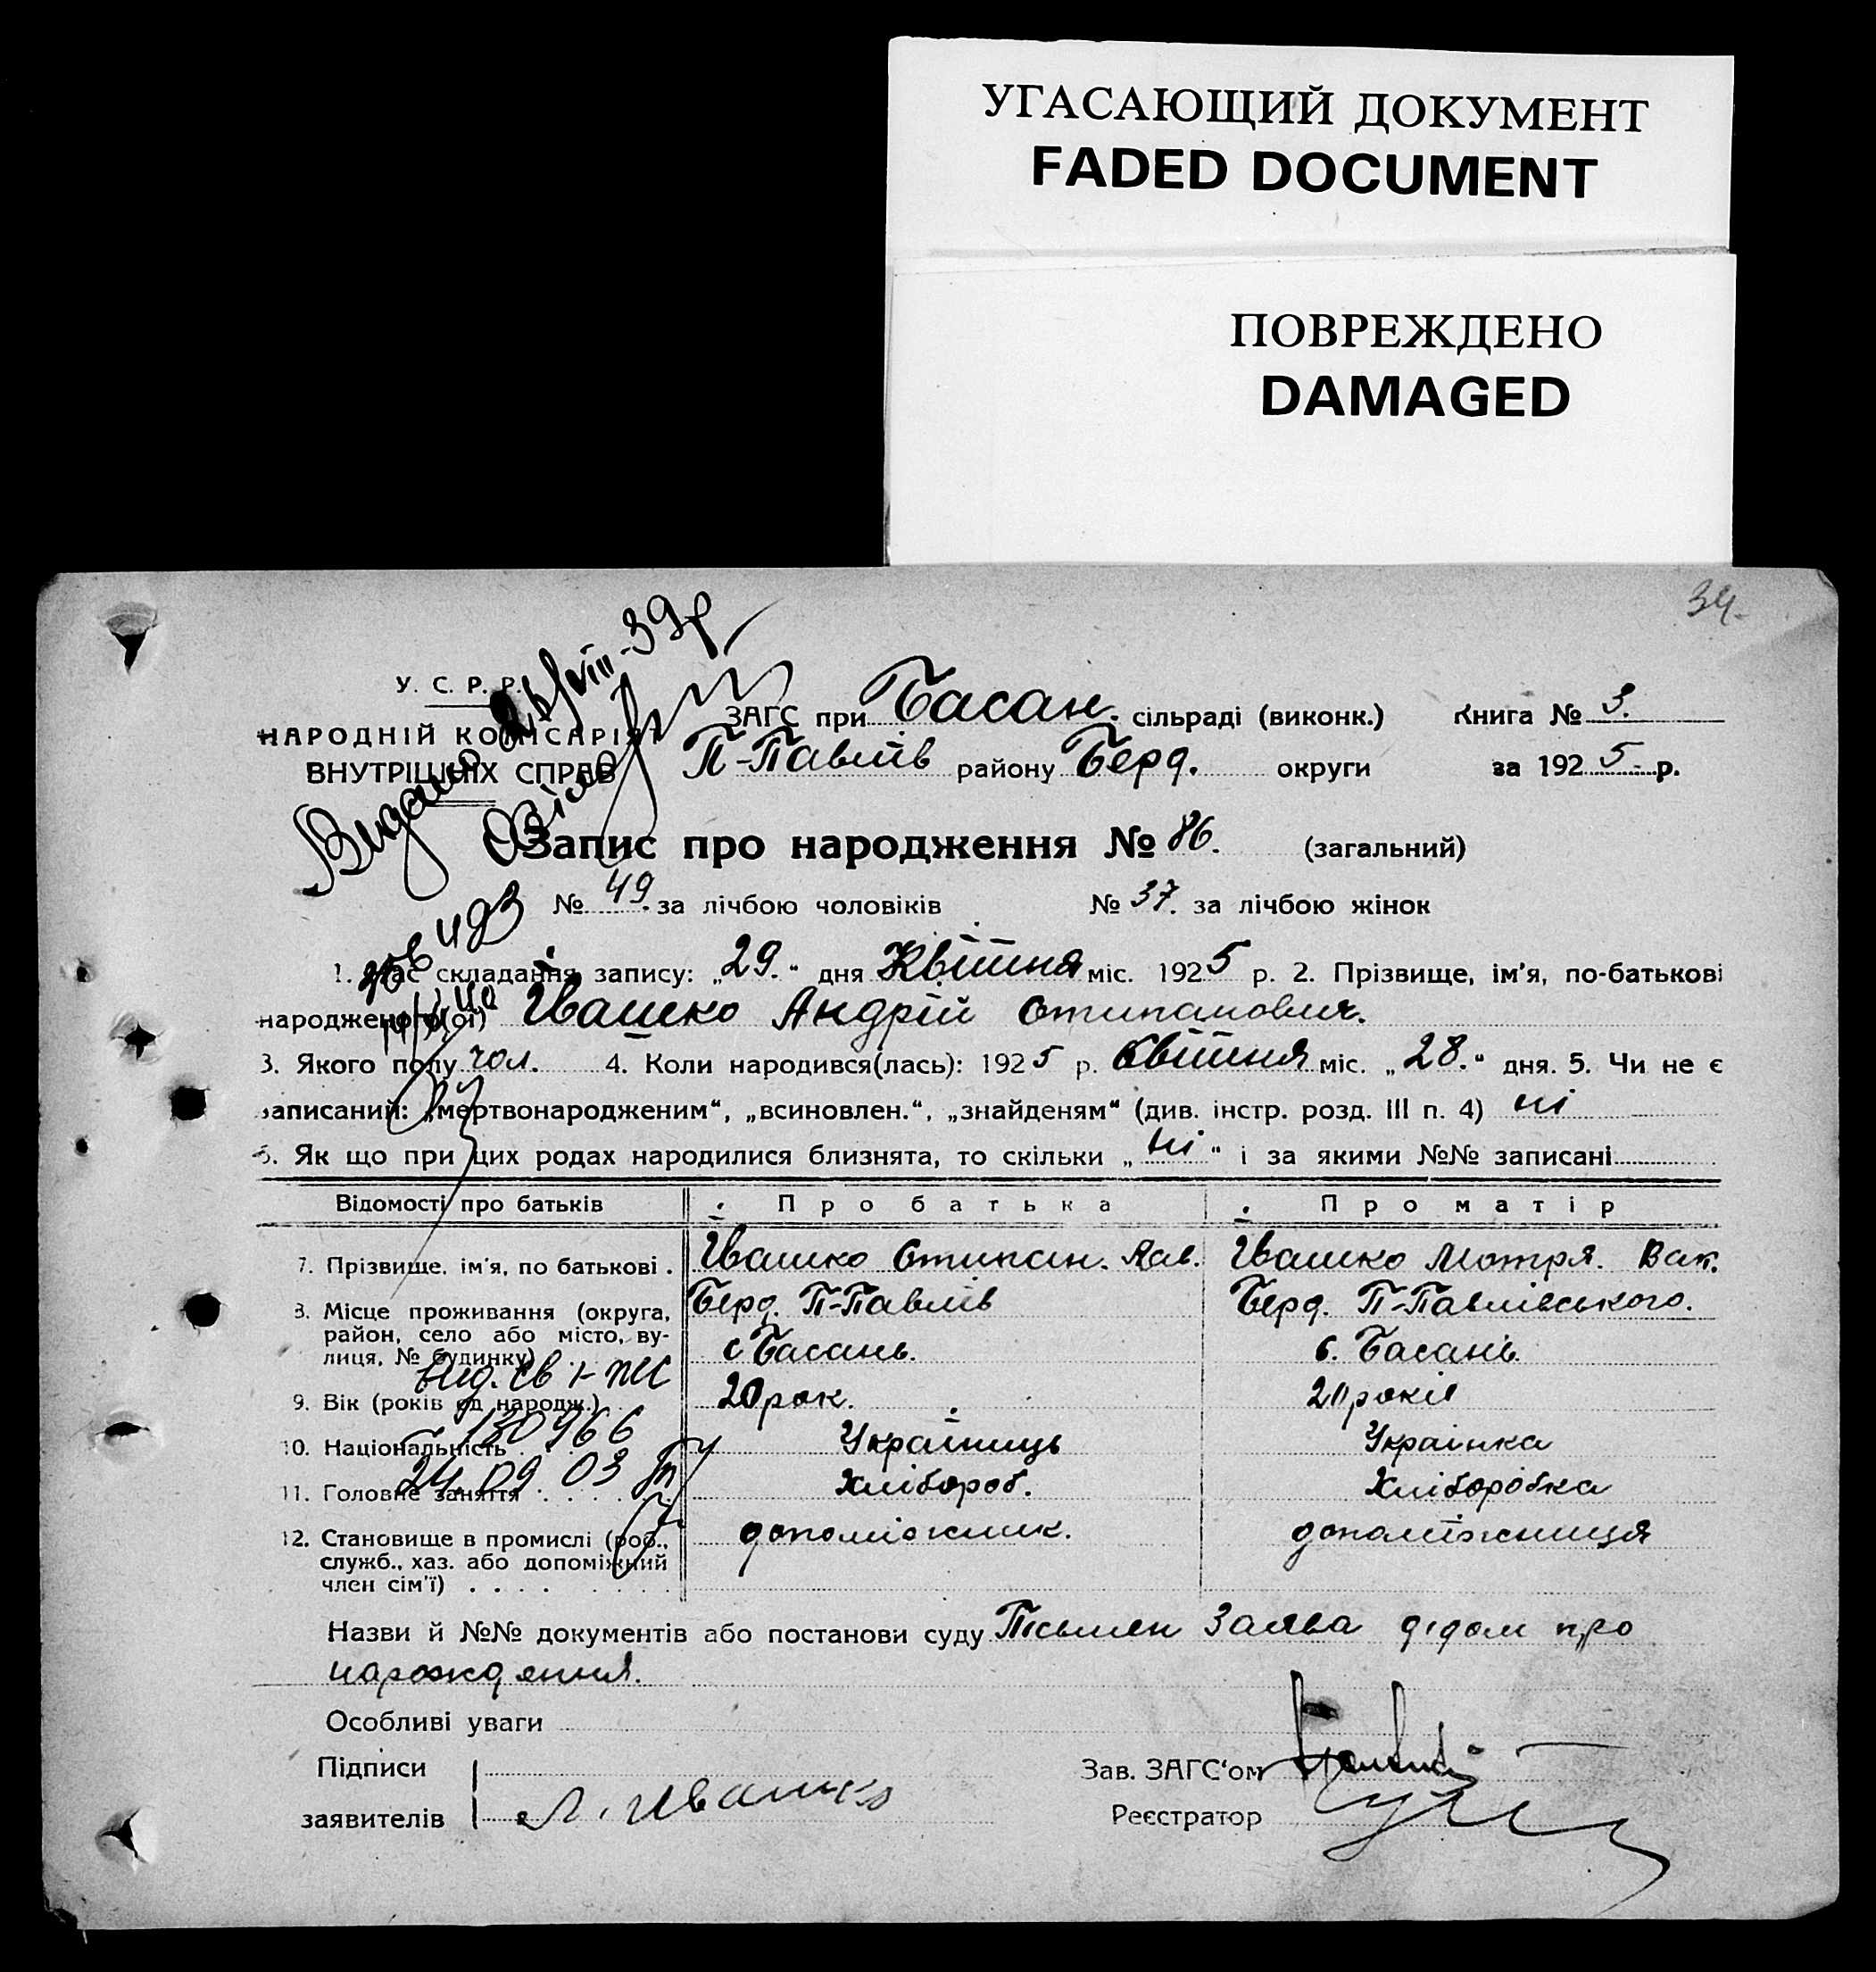 УГАСАЮЩИЙ ДОКУМЕНТ
FADED DOCUMENT
ПОВРЕЖДЕНО
DAMAGED
34.
У. С. Р. Р.
НАРОДНІЙ КОМІСАРІЯТ
ВНУТРІШНІХ СПРАВ
Видано 26/VIII-39р
ЗАГС при Басан. сільраді (виконк.) Книга № 3.
П-Павлів району Берд. округи за 1925 р.
Запис про народження № 86. (загальний)
№ 49. за лічбою чоловіків № 37. за лічбою жінок
1. Час складання запису: „29.“ дня Квітня міс. 1925 р. 2. Прізвище, ім'я, по-батькові
народженого(ої) Івашко Андрій Стипанович.
3. Якого полу чол. 4. Коли народився(лась): 1925 р. Квітня міс. „28.“ дня. 5. Чи не є
записаний: „мертвонародженим“, „всиновлен.“, „знайденям“ (див. інстр. розд. III п. 4) ні
6. Як що при цих родах народилися близнята, то скільки „ні“ і за якими №№ записані
Відомості про батьків Про батька Про матір
7. Прізвище, ім'я, по батькові . Івашко Стипан. Івашко Мотря. Вак.
8. Місце проживання (округа, Берд. П-Павлів Берд. П-Павлівського.
район, село або місто, ву-
лиця, № будинку) с Басань. с. Басань.
Вид. св
9. Вік (років од народж.) 20 рок. 20 років
130966
10. Національність Україниць Украінка
24.09.03
11. Головне заняття Хлібороб. Хліборобка
12. Становище в промислі (роб., допоміжник. допоміжниця
служб., хаз. або допоміжний
член сім'ї)
Назви й №№ документів або постанови суду Письмен Заява дідом про
нарождения.
Особливі уваги
Підписи Зав. ЗАГС'ом
заявителів Л. Ивашко Реєстратор